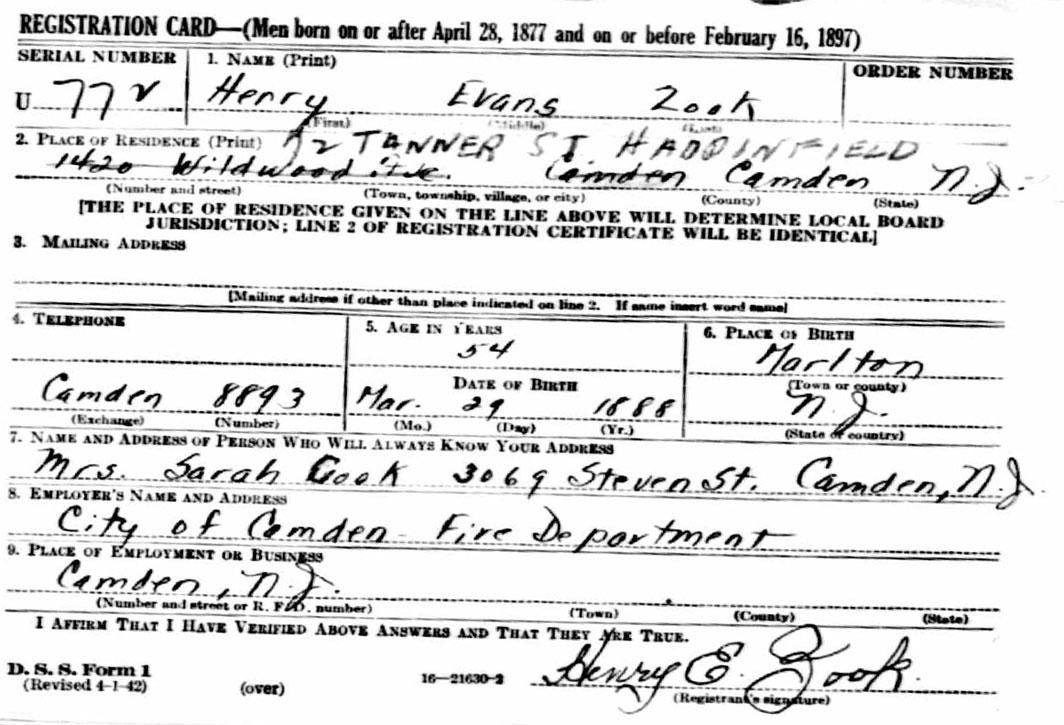 REGISTRATION CARD—(Men born on or after April 28, 1877 and on or before February 16, 1897)
SERIAL NUMBER 1. NAME (Print) ORDER NUMBER
U 772 Henry Evans Zook
(First) (Middle) (Last)
2. PLACE OF RESIDENCE (Print) TANNER ST. HADDINFIELD
1420 Wildwood Ave. Camden Camden N.J.
(Number and street) (Town, township, village, or city) (County) (State)
[THE PLACE OF RESIDENCE GIVEN ON THE LINE ABOVE WILL DETERMINE LOCAL BOARD
JURISDICTION; LINE 2 OF REGISTRATION CERTIFICATE WILL BE IDENTICAL]
3. MAILING ADDRESS
[Mailing address if other than place indicated on line 2. If same insert word same]
4. TELEPHONE 5. AGE IN YEARS 6. PLACE OF BIRTH
54 Marlton
DATE OF BIRTH (Town or county)
Camden 8893 Mar. 29 1888 N.J.
(Exchange) (Number) (Mo.) (Day) (Yr.) (State or country)
7. NAME AND ADDRESS OF PERSON WHO WILL ALWAYS KNOW YOUR ADDRESS
Mrs. Sarah 3069 Steven St. Camden, N.J.
8. EMPLOYER'S NAME AND ADDRESS
City of Camden - Fire Department
9. PLACE OF EMPLOYMENT OR BUSINESS
Camden, N.J.
(Number and street or R. F. D. number) (Town) (County) (State)
I AFFIRM THAT I HAVE VERIFIED ABOVE ANSWERS AND THAT THEY ARE TRUE.
D. S. S. Form 1
(Revised 4-1-42) (over) 16—21630-2 Henry E. Zook
(Registrant's signature)